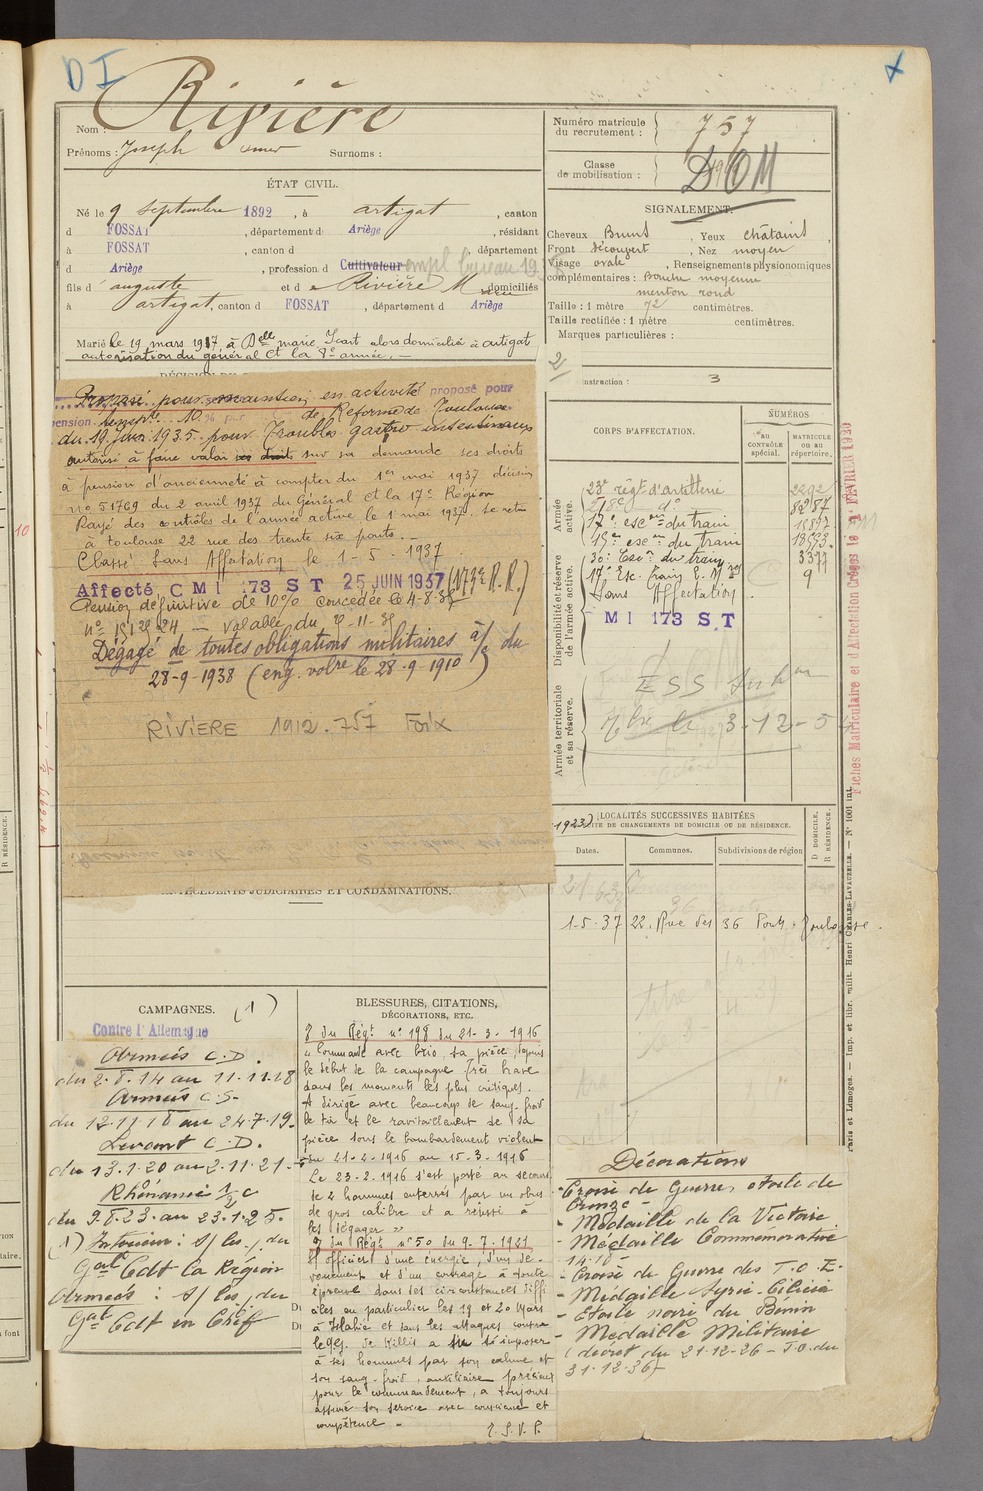 D I
Rivière
Nom :
Prénoms : Joseph Omer Surnoms :
ÉTAT CIVIL.
Né le 9 septembre 1892, à artigat, canton
d FOSSAT, département d Ariège, résidant
à FOSSAT, canton d , département
d Ariège, profession d Cultivateur empl bureau
fils d'auguste et de Rivière domiciliés
à artigat, canton d FOSSAT, département d Ariège
Marié le 19 mars 1917, à Delle marie Icart alors domiciliée à artigat
autorisation du général Ct la 8e armée.
Numéro matricule
du recrutement : 757
Classe
de mobilisation : DOM
SIGNALEMENT.
Cheveux Bruns, Yeux châtains
Front découvert, Nez moyen
Visage ovale, Renseignements physionomiques
complémentaires : Bouche moyenne
menton rond
Taille : 1 mètre 72 centimètres.
Taille rectifiée : 1 mètre centimètres.
Marques particulières :
2
instruction : 3
Proposé pour maintien en activité proposé pour
pension tempre 10 % par de Réforme de Toulouse
du 19 juin 1935 pour Troubles gastro intestinaux
autorisé à faire valoir ses droits sur sa demande ses droits
à pension d'ancienneté à compter du 1er mai 1937 décision
no 51769 du 2 avril 1937 du Général Ct la 17e Région
Rayé des contrôles de l'armée active le 1 mai 1937. se retire
à toulouse 22 rue des trente six ponts.
Classé Sans Affectation le 1-5-1937
Affecté C M I 173 S T 25 JUIN 1937 (173e R.R.)
Pension définitive de 10% concédée le 4-8-38
Dégagé de toutes obligations militaires à/c du
28-9-1938 (eng. volre le 28-9-1910)
RIVIERE 1912-757 Foix
CORPS D'AFFECTATION.
NUMÉROS
AU CONTRÔLE spécial.
MATRICULE ou au répertoire.
Armée active.
Disponibilité et réserve de l'armée active.
Armée territoriale et sa réserve.
23e régt d'artillerie 2292
218e do
17e escon du train
19e escon du train
30e Escn du train 3377
17e Esc. train 9
Sans Affectation
M I 173 S.T
3-12-5
Fiches Matriculaire et d'Affectation Créées le FÉVRIER
LOCALITÉS SUCCESSIVES HABITÉES
PAR SUITE DE CHANGEMENTS DE DOMICILE OU DE RÉSIDENCE.
Dates. Communes. Subdivisions de région D DOMICILE, R RÉSIDENCE.
1-5-37 22, Rue des 36 Ponts, Toulouse.
ANTÉCÉDENTS JUDICIAIRES ET CONDAMNATIONS.
CAMPAGNES. (1)
Contre l'Allemagne
Armées C.D.
du 2.8.14 au 11.11.18
Armées C.S.
du 12.11.18 au 24.7.19.
Levant C.D.
du 13.1.20 au 2.11.21.
Rhénanie 1/2 C
du 9.8.23. au 23.1.25.
(1) Intérieur : s/ les / du
Gal Cdt la Région
Armées : s/ les / du
Gal Cdt en Chef
BLESSURES, CITATIONS,
DÉCORATIONS, ETC.
O du Régt no 198 du 21-3-1916
"Commande avec brio, sa pièce, depuis
le début de la campagne. Très brave
dans les moments les plus critiques.
A dirigé avec beaucoup de sang-froid
le tir et le ravitaillement de sa
pièce sous le bombardement violent
du 21-2-1916 au 15-3-1916
Le 23-2-1916 s'est porté au secours
de 2 hommes enterrés par un obus
de gros calibre et a réussi à
les dégager "
O du Régt no 50 du 9.7.1921
S/ officier d'une énergie, d'un dé-
vouement et d'un courage à toute
épreuve dans les circonstances diffi
ciles en particulier les 19 et 20 Mars
à Islahié et dans les attaques contre
le défilé de Killis a su s'imposer
à ses hommes par son calme et
son sang-froid, auxiliaire précieux
pour le commandement, a toujours
assuré son service avec conscience et
compétence "
T.S.V.P.
Décorations
- Croix de Guerre, étoile de
bronze
- Médaille de la Victoire
- Médaille Commémorative
14-18
- Croix de Guerre des T.O.E.
- Médaille Syrie-Cilicie
- Etoile noire du Bénin
- Médaille Militaire
(décret du 21-12-26 - J.O. du
31-12-36)
Paris et Limoges. — Imp. et libr. milit. Henri CHARLES-LAVAUZELLE. — No 1001 int.